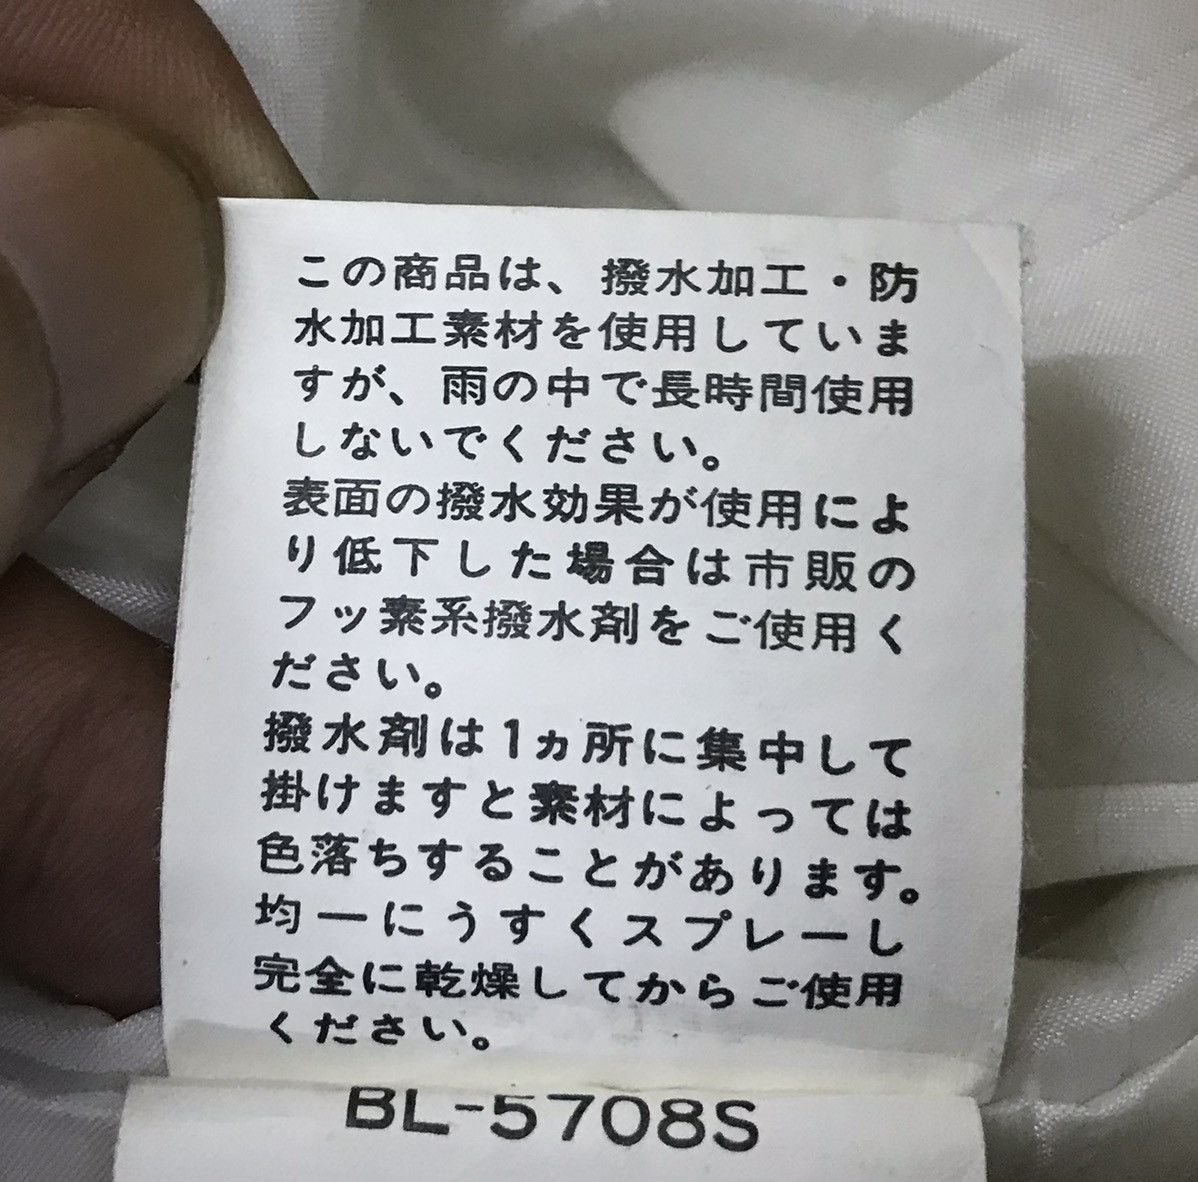 この商品は、撥水加工・防
水加工素材を使用していま
すが、雨の中で長時間使用
しないでください。
表面の撥水効果が使用によ
り低下した場合は市販の
フッ素系撥水剤をご使用く
ださい。
撥水剤は1ヵ所に集中して
掛けますと素材によっては
色落ちすることがあります。
均一にうすくスプレーし
完全に乾燥してからご使用
ください。
BL-5708S